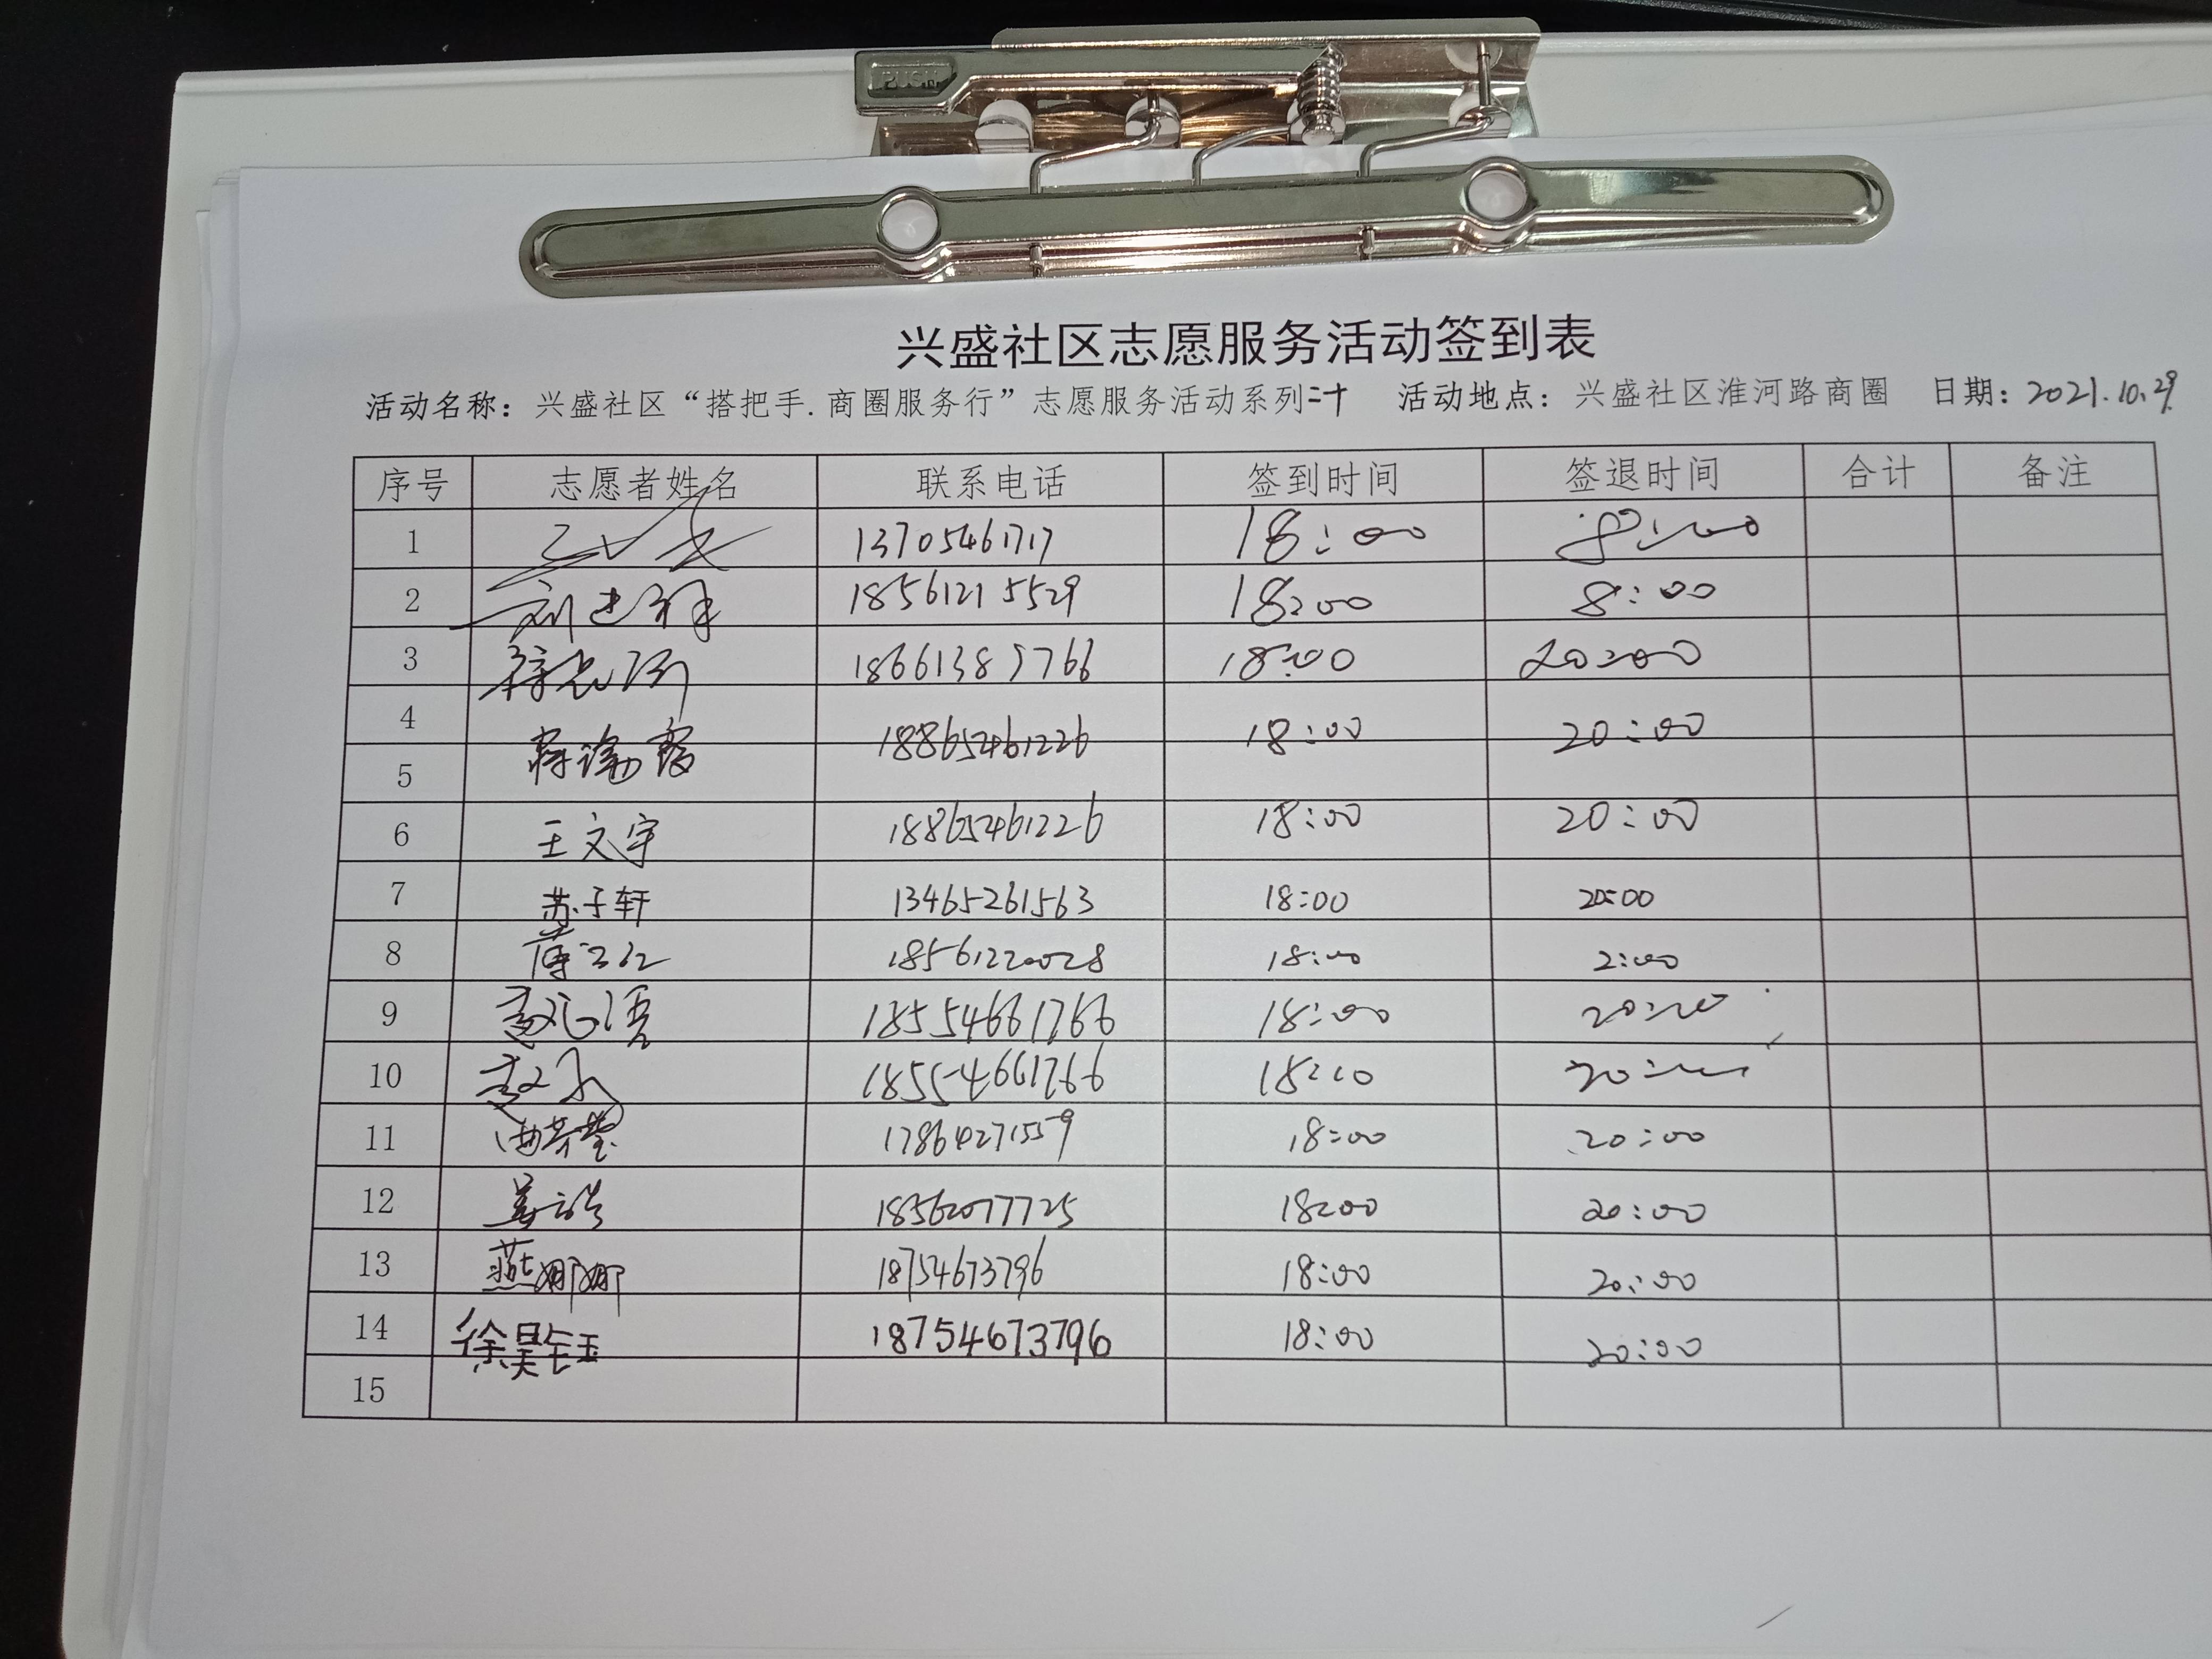 PUSH
兴盛社区志愿服务活动签到表
活动名称：兴盛社区“搭把手.商圈服务行”志愿服务活动系列二十 活动地点：兴盛社区淮河路商圈 日期：2021.10.29
序号 志愿者姓名 联系电话 签到时间 签退时间 合计 备注
1 13705461717 18:00 8:00
2 刘建祥 18561215529 18:00 8:00
3 18661389766 18:00 20:00
4 18865461226 18:00 20:00
5
6 王文宇 18865461226 18:00 20:00
7 苏子轩 13465261563 18:00 20:00
8 18561220028 18:00 2:00
9 18554661766 18:00 20:00
10 18554661766 18:00 20:00
11 17864271559 18:00 20:00
12 18562077725 18:00 20:00
13 燕娜娜 18754673796 18:00 20:00
14 徐昊钰 18754673796 18:00 20:00
15